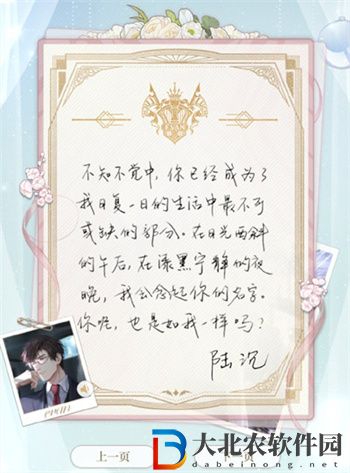 不知不觉中，你已经成为了
我日复一日的生活中最不可
或缺的部分。在日光西斜
的午后，在漆黑宁静的夜
晚，我会念起你的名字。
你呢，也是如我一样吗？
陆沉
上一页
大北农软件园
dabeinong.com